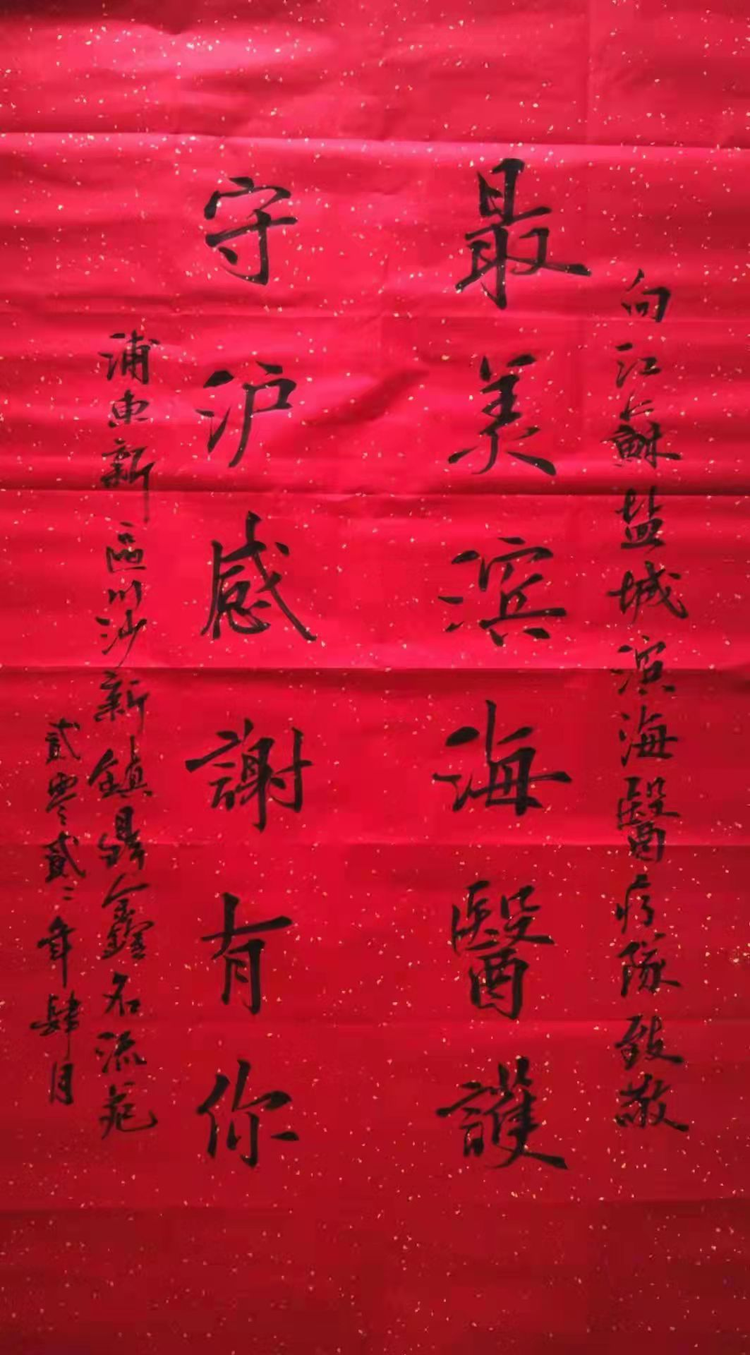 向江蘇盐城滨海醫疗隊致敬
最美滨海醫護
守沪感謝有你
浦東新區川沙新鎮鼎鑫名流苑
貳零貳二年肆月